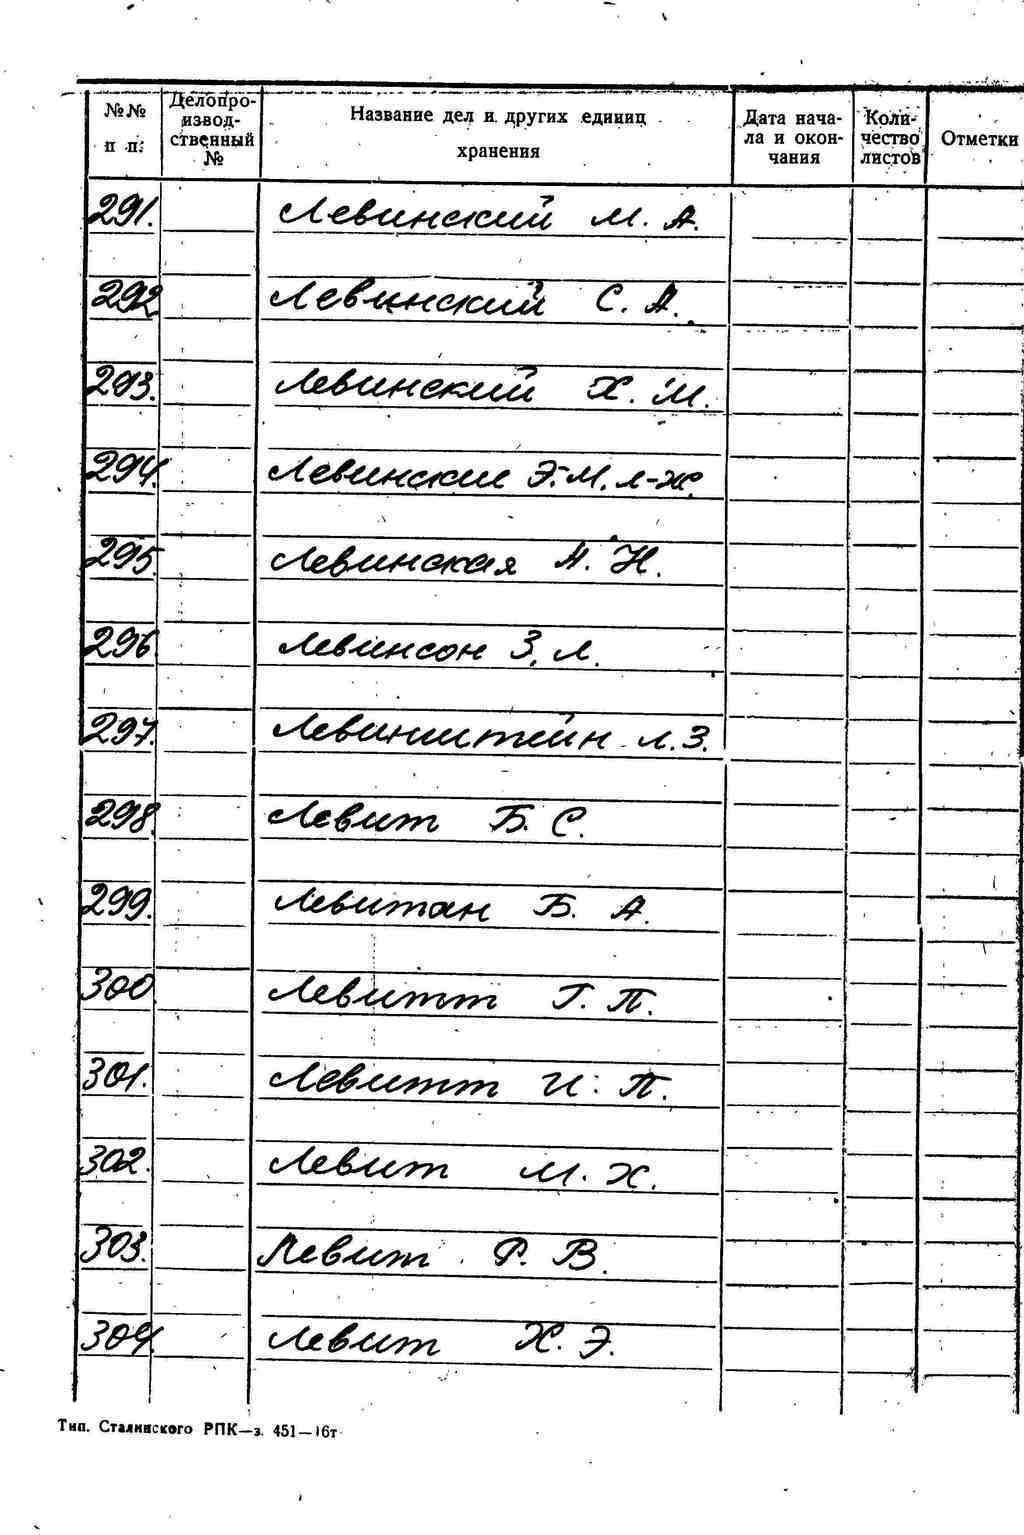 №№ п п. Делопроизводственный № Название дел и других единиц хранения Дата начала и окончания Количество листов Отметки
291. Левинский М. А.
292 Левинский С. А.
293. Левинский Х. М.
294. Левинские Э. М. Л-Ж.
295. Левинская М. Н.
296 Левинсон З. Л.
297. Левинштейн Л. З.
298 Левит Б. С.
299. Левитан Б. А.
300 Левитт Г. П.
301. Левитт И. П.
302. Левит М. Х.
303. Левит Р. В.
304. Левит Х. Э.
Тип. Сталинского РПК—з. 451—16т